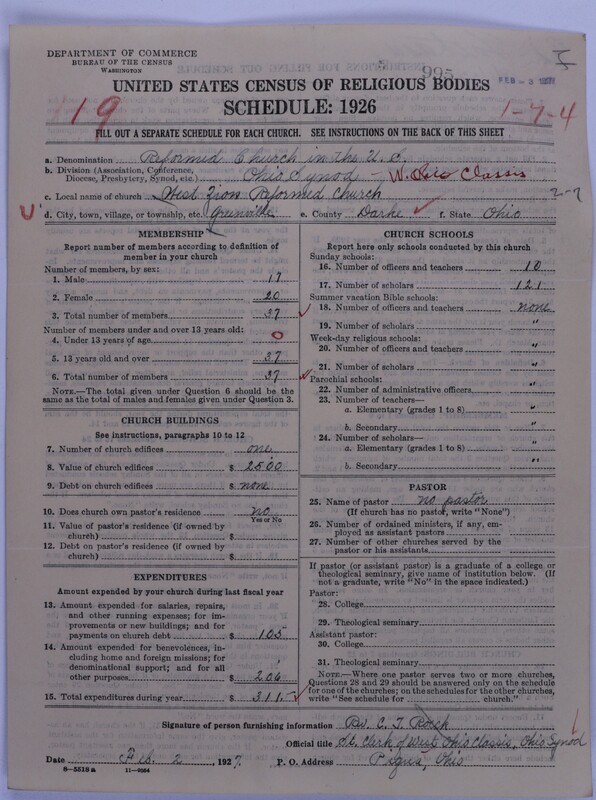 DEPARTMENT OF COMMERCE
BUREAU OF THE CENSUS
WASHINGTON
995
UNITED STATES CENSUS OF RELIGIOUS BODIES
SCHEDULE: 1926
19
1-7-4
FILL OUT A SEPARATE SCHEDULE FOR EACH CHURCH. SEE INSTRUCTIONS ON THE BACK OF THIS SHEET
a. Denomination Reformed Church in the U.S.
b. Division (Association, Conference, Diocese, Presbytery, Synod, etc.) Ohio Synod - W. Ohio Classis
c. Local name of church West Zion Reformed Church
2-7
d. City, town, village, or township, etc. Greenville e. County Darke f. State Ohio
MEMBERSHIP
Report number of members according to definition of
member in your church
Number of members, by sex:
1. Male 17
2. Female 20
3. Total number of members 37
Number of members under and over 13 years old:
4. Under 13 years of age 0
5. 13 years old and over 37
6. Total number of members 37
NOTE.—The total given under Question 6 should be
same as the total of males and females given under Question 3.
CHURCH BUILDINGS
See instructions, paragraphs 10 to 12
7. Number of church edifices one
8. Value of church edifices $ 2500
9. Debt on church edifices $ none
10. Does church own pastor's residence no
Yes or No
11. Value of pastor's residence (if owned by
church) $
12. Debt on pastor's residence (if owned by
church) $
EXPENDITURES
Amount expended by your church during last fiscal year
13. Amount expended for salaries, repairs,
and other running expenses; for im-
provements or new buildings; and for
payments on church debt $ 105
14. Amount expended for benevolences, in-
cluding home and foreign missions; for
denominational support; and for all
other purposes $ 206
15. Total expenditures during year $ 311
CHURCH SCHOOLS
Report here only schools conducted by this church
Sunday schools:
16. Number of officers and teachers 10
17. Number of scholars 121
Summer vacation Bible schools:
18. Number of officers and teachers none
19. Number of scholars "
Week-day religious schools:
20. Number of officers and teachers "
21. Number of scholars "
Parochial schools:
22. Number of administrative officers "
23. Number of teachers—
a. Elementary (grades 1 to 8) "
b. Secondary "
24. Number of scholars—
a. Elementary (grades 1 to 8) "
b. Secondary "
PASTOR
25. Name of pastor no pastor
(If church has no pastor, write "None")
26. Number of ordained ministers, if any, em-
ployed as assistant pastors
27. Number of other churches served by the
pastor or his assistants
If pastor (or assistant pastor) is a graduate of a college or
theological seminary, give name of institution below. (If
not a graduate, write "No" in the space indicated.)
Pastor:
28. College
29. Theological seminary
Assistant pastor:
30. College
31. Theological seminary
NOTE.—Where one pastor serves two or more churches,
Questions 28 and 29 should be answered only on the schedule
for one of the churches; on the schedules for the other churches,
write "See schedule for church."
Signature of person furnishing information Rev. C. T. Rock
Official title S.C. Clerk of West Ohio Classis, Ohio Synod
Date Feb. 2, 1927. P. O. Address Piqua, Ohio
8-5518a 11-9084